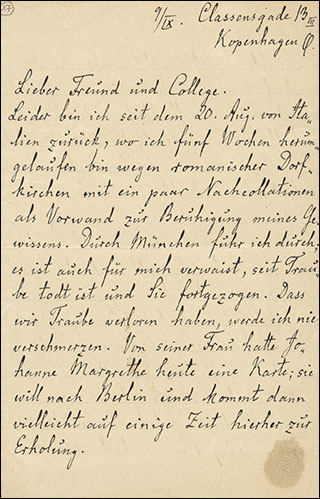 9/IX. Classensgade 13 III
Kopenhagen Ø.
Lieber Freund und College.
Leider bin ich seit dem 20. Aug. von Ita-
lien zurück, wo ich fünf Wochen herum-
gelaufen bin wegen romanischer Dorf-
kirchen mit ein paar Nachcollationen
als Vorwand zur Beruhigung meines Ge-
wissens. Durch München fuhr ich durch;
es ist auch für mich verwaist, seit Trau-
be todt ist und Sie fortgezogen. Dass
wir Traube verloren haben, werde ich nie
verschmerzen. Von seiner Frau hatte Jo-
hanne Margrethe heute eine Karte; sie
will nach Berlin und kommt dann
vielleicht auf einige Zeit hierher zur
Erholung.